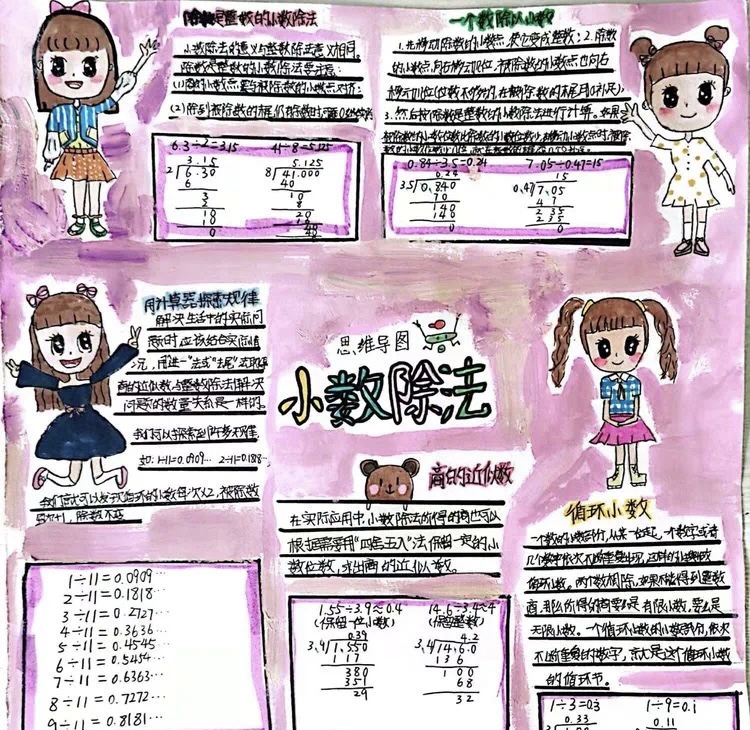 除数是整数的小数除法
小数除法的意义与整数除法意义相同,
除数是整数的小数除法要注意:
(1)商的小数点要与被除数的小数点对齐;
(2)除到被除数的末尾仍有余数时,添0继续除
6.3÷2=3.15
41÷8=5.125
3.15
2 6.30
6
3
2
10
10
0
5.125
8 41.000
40
10
8
20
16
40
40
一个数除以小数
1.先移动除数的小数点,使它变成整数;2.除数
的小数点向右移动几位,被除数的小数点也向右
移动几位(位数不够的,在被除数的末尾用0补足)
3.然后按除数是整数的小数除法进行计算。如果
0.84÷3.5=0.24
7.05÷0.47=15
0.24
3.5 0.840
70
140
140
0
15
0.47 7.05
47
235
235
0
用计算器探索规律
解决生活中的实际问
题时,应该结合实际情
况,用"进一"法或"去尾"法取
商的近似数与整数除法解决
问题的数量关系是一样的。
我们可以探索到许多规律,
如:1÷11=0.0909… 2÷11=0.1818…
1÷11=0.0909…
2÷11=0.1818…
3÷11=0.2727…
4÷11=0.3636…
5÷11=0.4545…
6÷11=0.5454…
7÷11=0.6363…
8÷11=0.7272…
9÷11=0.8181…
思维导图
小数除法
商的近似数
在实际应用中,小数除法所得的商也可以
根据需要用"四舍五入"法保留一定的小
数位数,求出商的近似数。
1.55÷3.9≈0.4
(保留一位小数)
14.6÷3.4≈4
(保留整数)
0.39
3.9 1.550
117
380
351
29
4.2
3.4 14.6.0
136
100
68
32
循环小数
一个数的小数部分,从某一位起,一个数字或者
几个数字依次不断重复出现,这样的小数叫做
循环小数。两个数相除,如果不能得到整数
商,那么所得的商要么是有限小数,要么是
无限小数。一个循环小数的小数部分,依次
不断重复的数字,就是这个循环小数
的循环节。
1÷3=0.3
1÷9=0.1
0.33
0.11